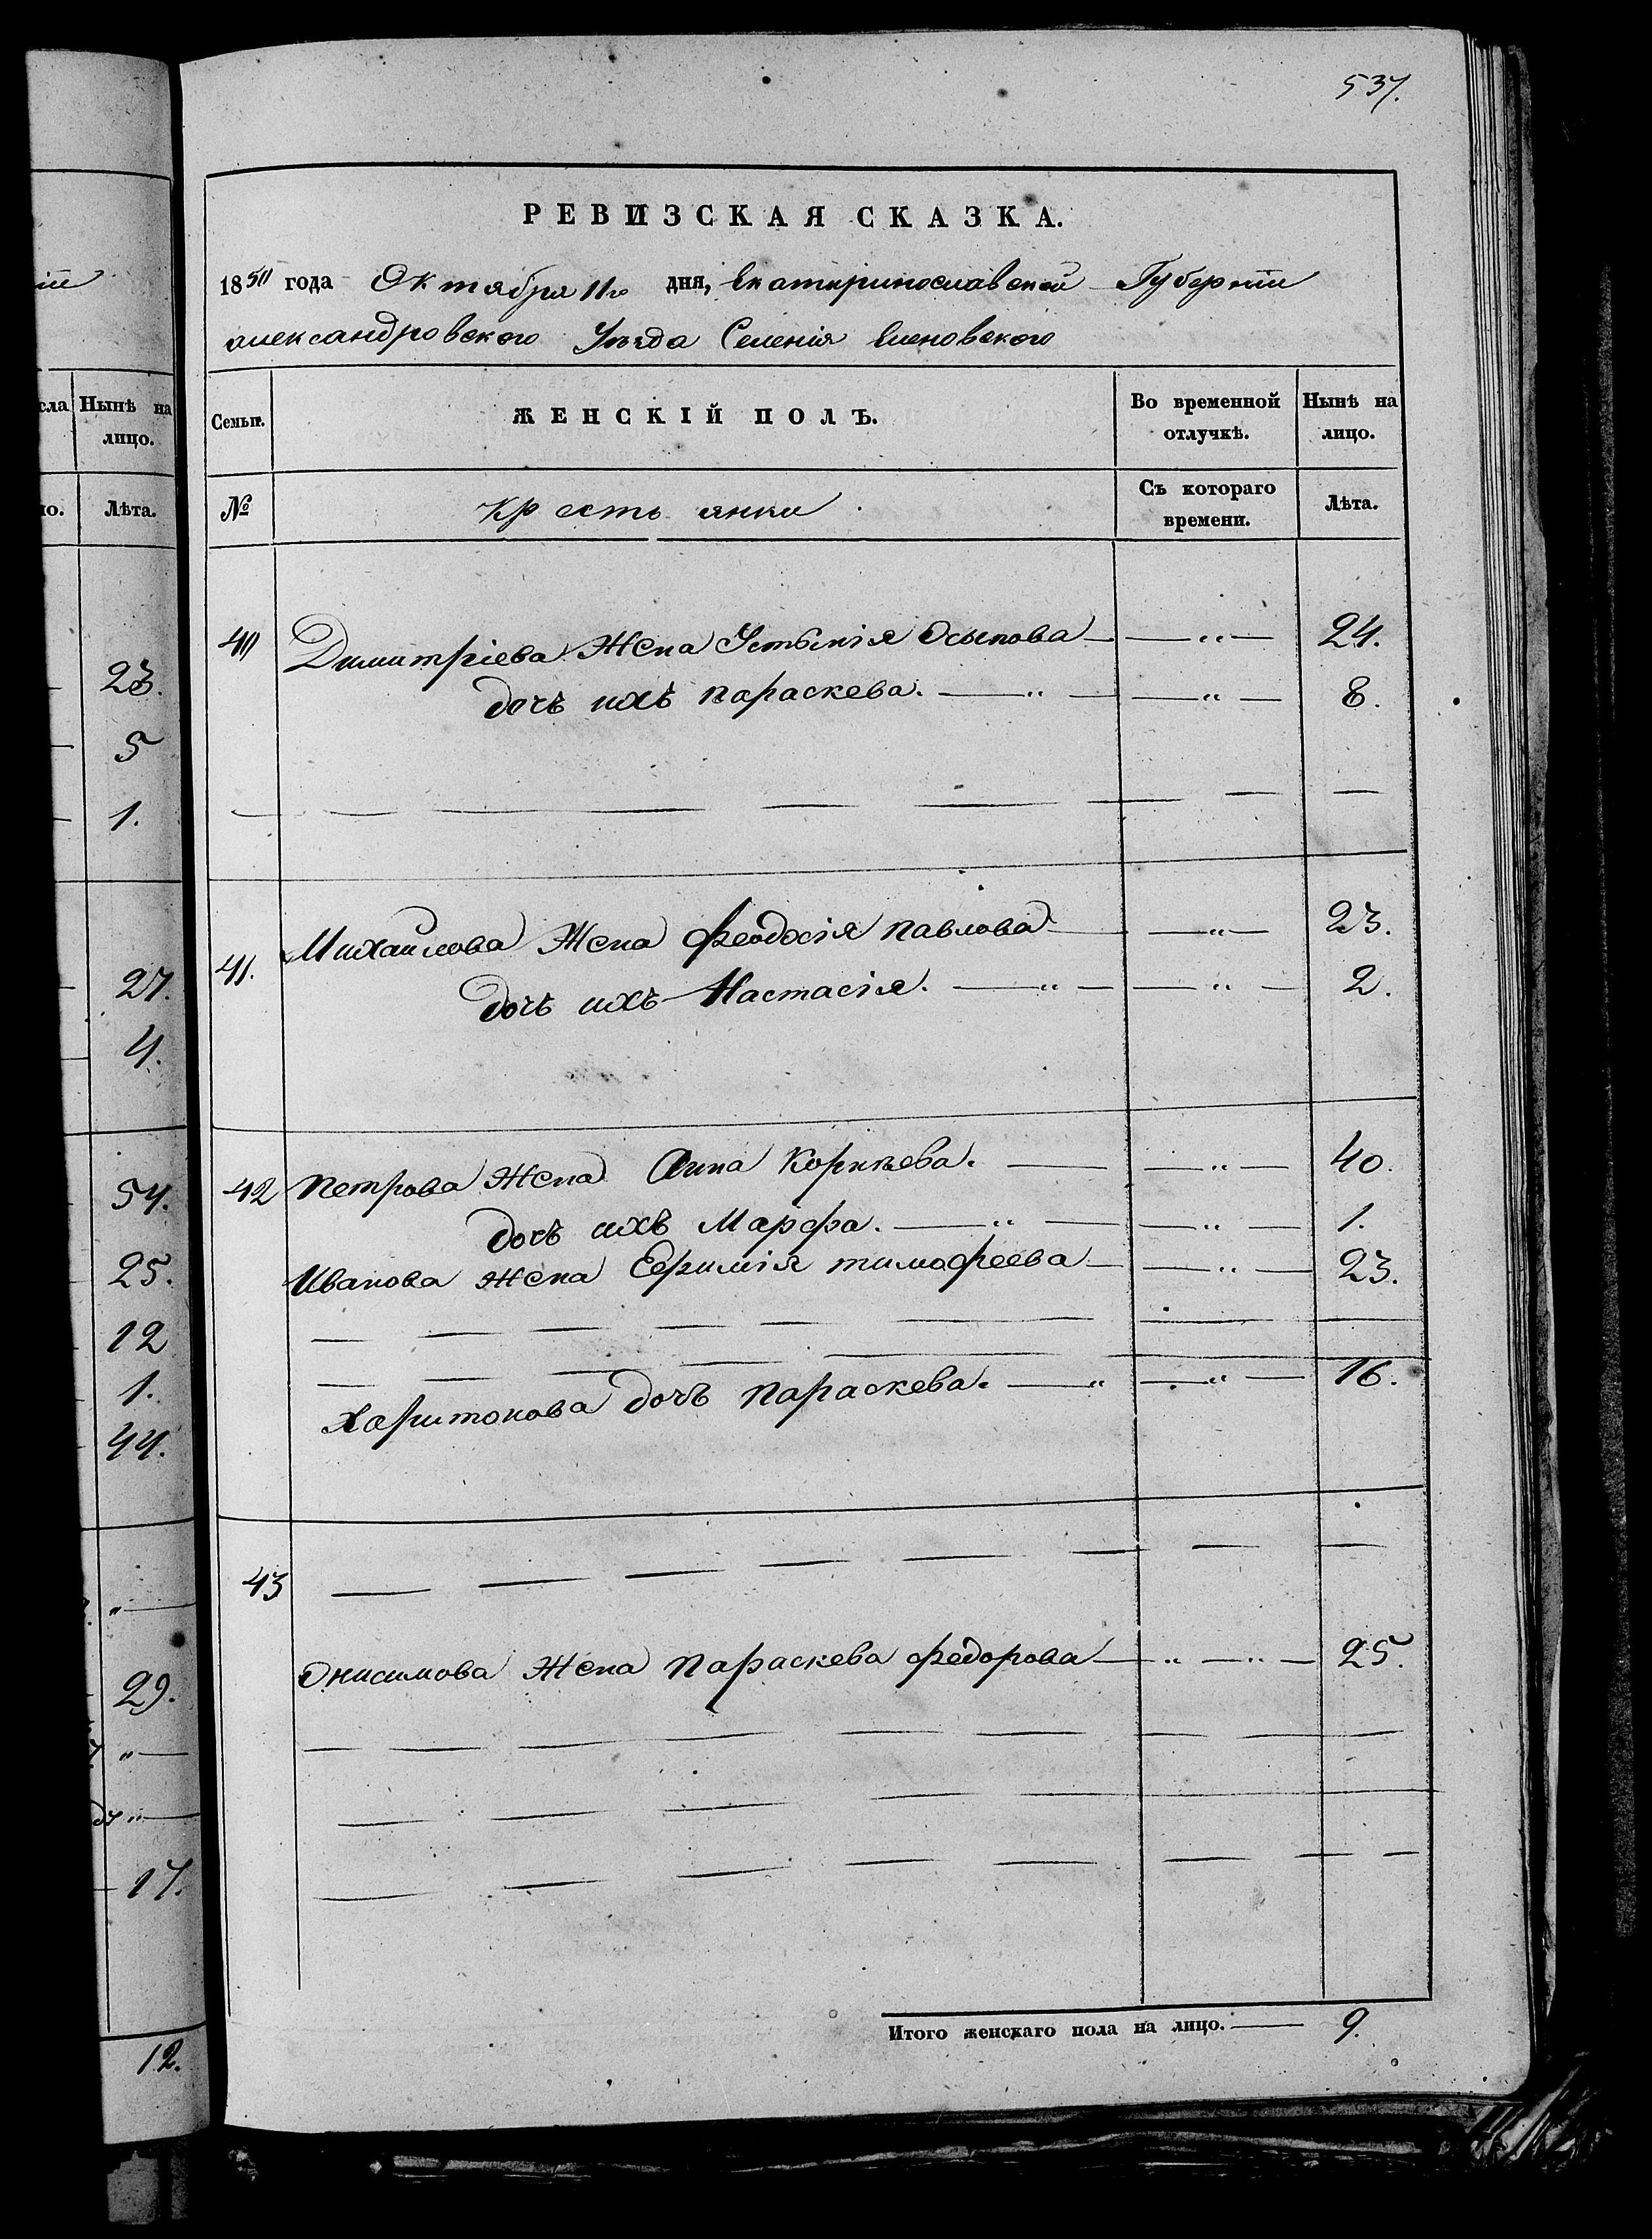 537.
РЕВИЗСКАЯ СКАЗКА.
1850 года Октября 11го дня, Екатеринославской Губерніи
александровского Уезда Селенія Еленовского
Семьи. ЖЕНСКІЙ ПОЛЪ. Во временной отлучкѣ. Нынѣ на лицо.
№ крестьянки Съ котораго времени. Лѣта.
40 Димитріева Жена Устинія Осипова — — „ — 24.
дочь ихъ параскева. — „ — — „ — 8.
41. Михаилова Жена Феодосія павлова — — „ — 23.
дочь ихъ Настасія. — „ — — „ — 2.
42 петрова Жена Анна Корнѣева. — — „ — 40.
дочь ихъ Марфа. — „ — — „ — 1.
Иванова жена Ефимія тимофеева — — „ — 23.
Харитонова дочь параскева. — „ — „ — 16.
43
Онисимова Жена параскева федорова — „ — „ — 25.
Итого женскаго пола на лицо. — 9.
сла Нынѣ на лицо.
ло. Лѣта.
23.
5
1.
27.
4.
54.
25.
12
1.
44.
„ —
29.
„ —
„ —
17.
12.